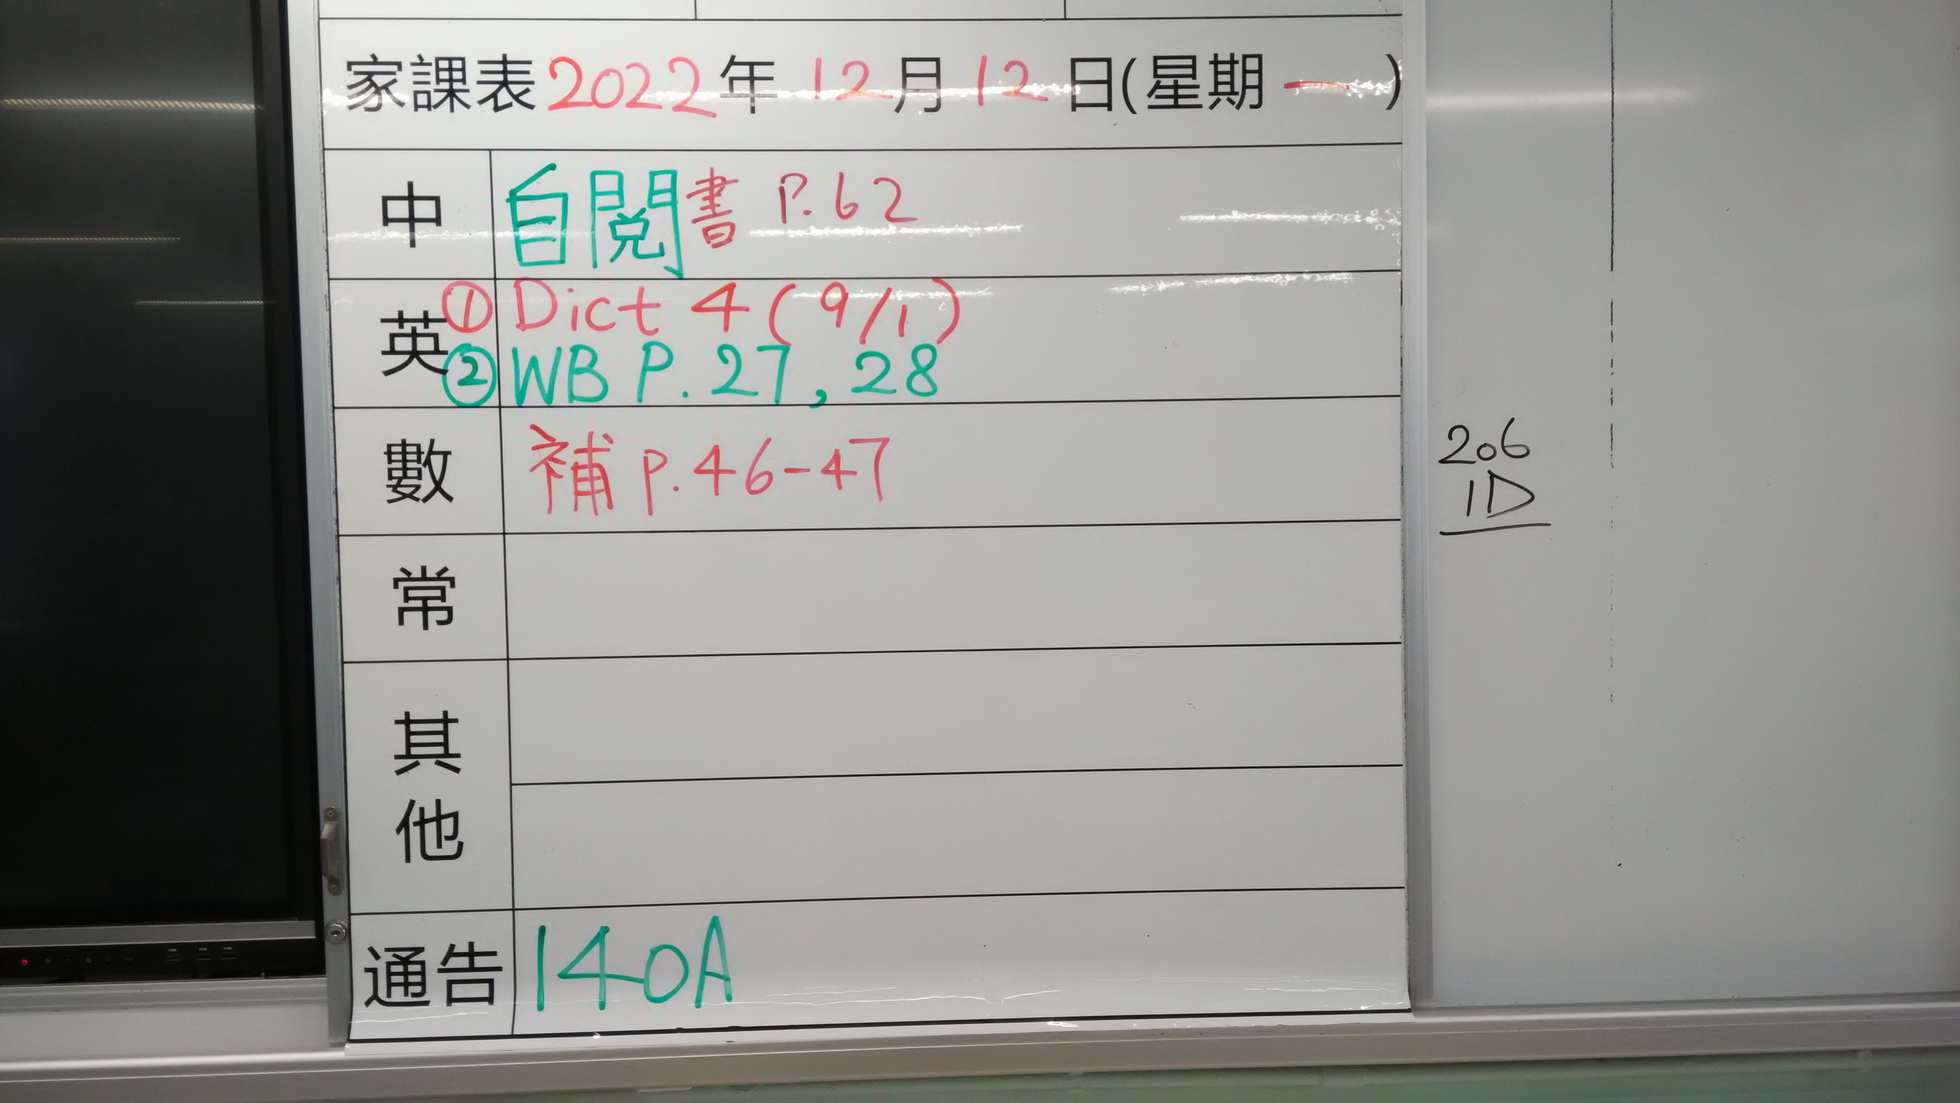 家課表2022年12月12日(星期一)
中 自閱書 P.62
英 ① Dict 4 (9/1)
② WB P.27, 28
數 補 P.46-47
常
其他
通告 140A
206
1D